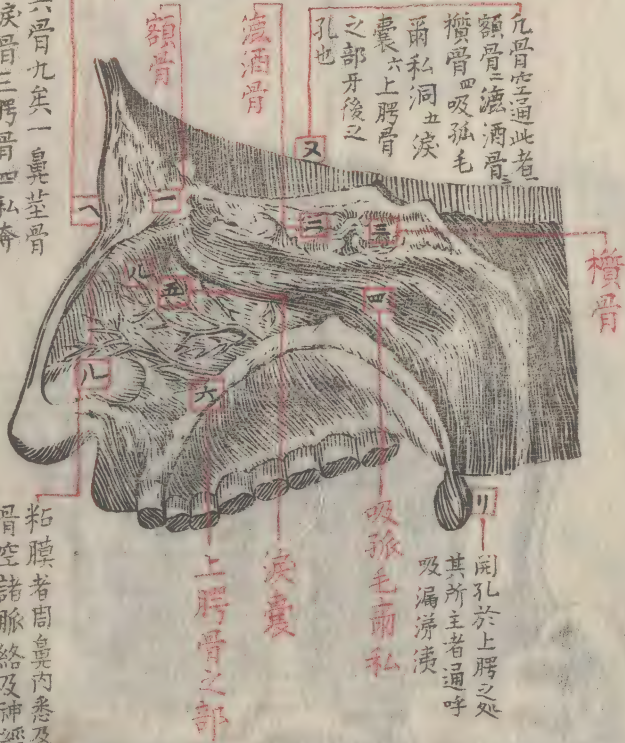 櫕骨
凢骨空通此者一
額骨二漉酒骨三
櫕骨四吸狐毛
爾私洞五淚
囊六上腭骨
之部牙後之
孔也
漉酒骨
額骨
六骨九矣一鼻莖骨
淚骨三腭骨四私奔
ヌ
ヘ
一
二
三
四
五
ル
六
八
リ
開孔於上腭之処
其所主者通呼
吸漏涕洟
吸狐毛爾私
淚囊
上腭骨之部
粘膜者周鼻内悉及
骨空諸脈絡及神經